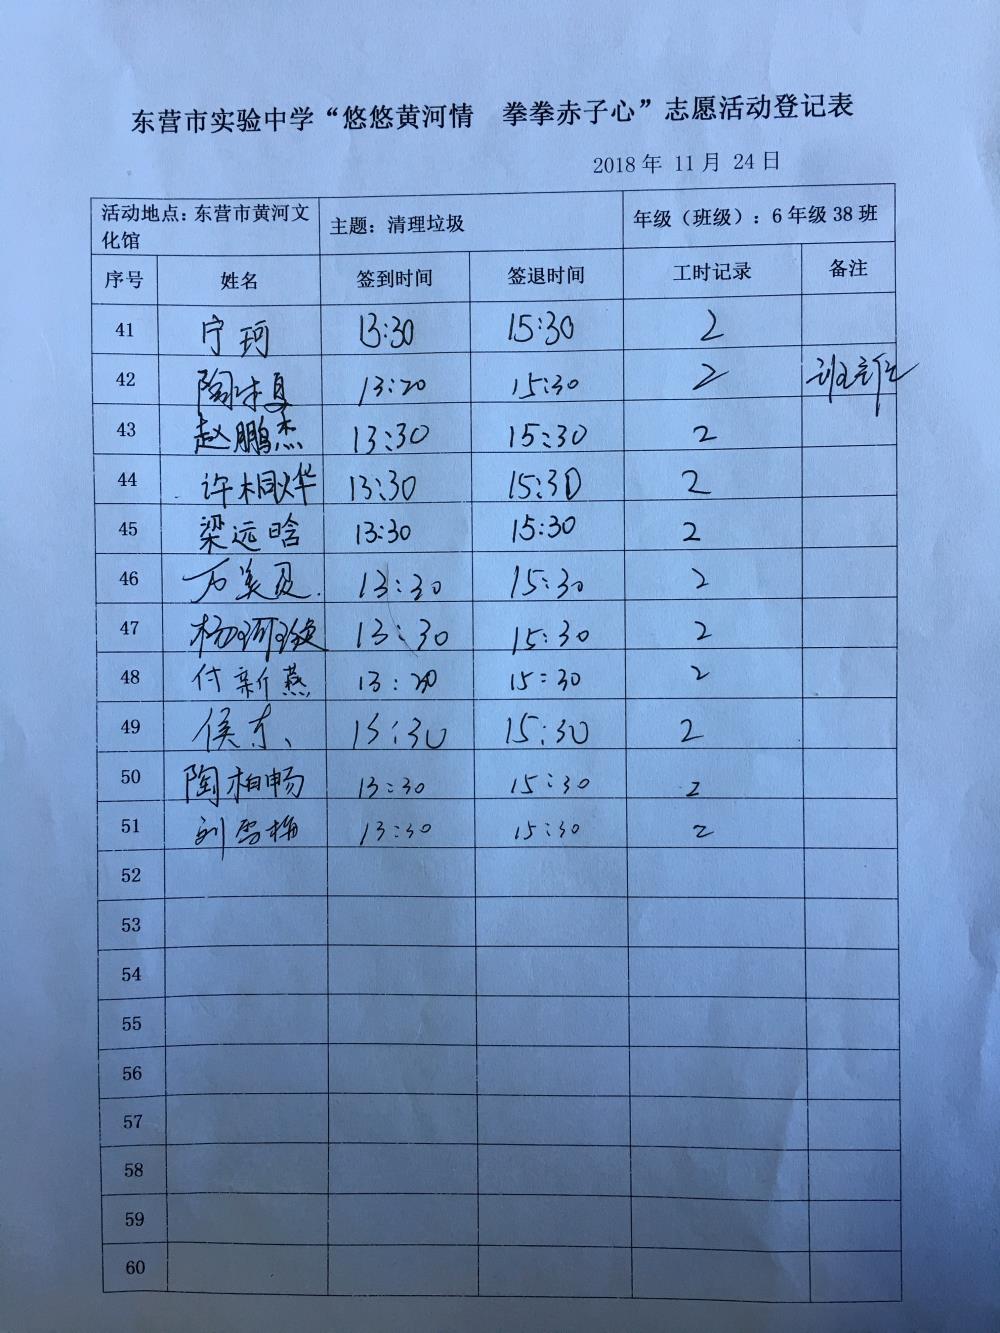 东营市实验中学“悠悠黄河情 拳拳赤子心”志愿活动登记表
2018年 11月 24日
活动地点：东营市黄河文化馆 主题：清理垃圾 年级（班级）：6年级38班
序号 姓名 签到时间 签退时间 工时记录 备注
41 宁珂 13:30 15:30 2
42 陶 13:20 15:30 2 班主任
43 赵鹏杰 13:30 15:30 2
44 许桐烨 13:30 15:30 2
45 梁远晗 13:30 15:30 2
46 万美 13:30 15:30 2
47 杨 13:30 15:30 2
48 付新燕 13:20 15:30 2
49 侯东 13:30 15:30 2
50 陶柏畅 13:30 15:30 2
51 刘雪梅 13:30 15:30 2
52
53
54
55
56
57
58
59
60